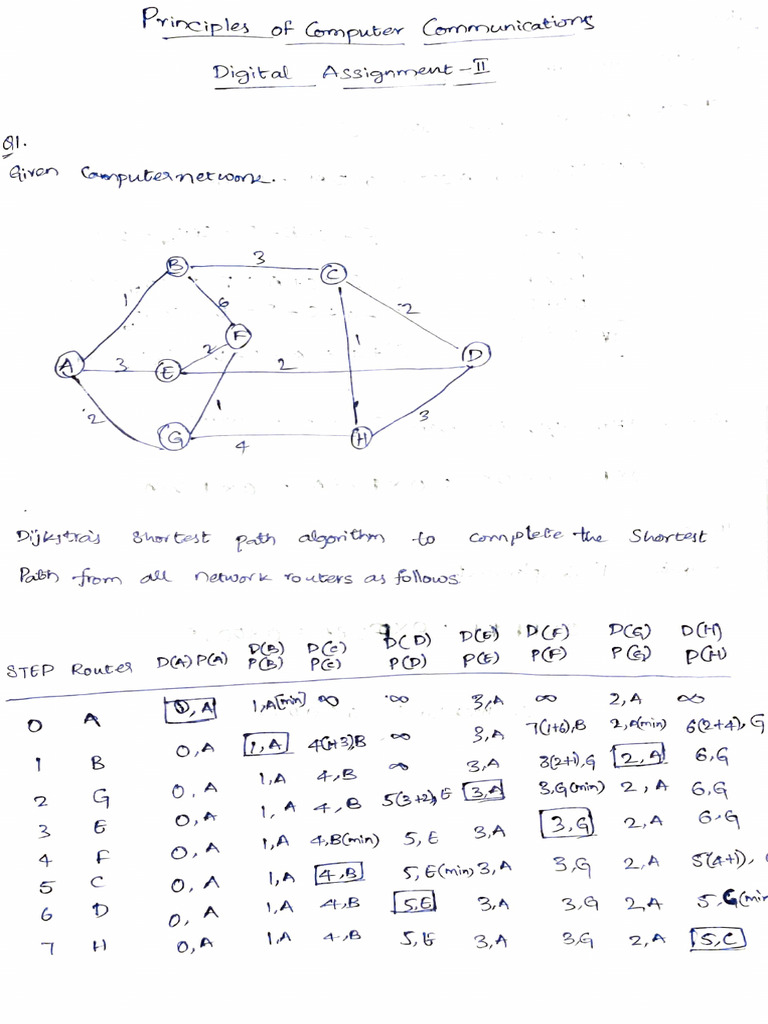 Principles of Computer Communications
Digital Assignment - II
Q1.
Given Computer network.
B 3 C
1 6 2
F
2 1
A 3 E 2 D
1
2 3
G 4 H
Dijkstra's shortest path algorithm to complete the shortest
Path from all network routers as follows
STEP Router D(A) P(A) D(B) P(B) D(C) P(C) D(D) P(D) D(E) P(E) D(F) P(F) D(G) P(G) D(H) P(H)
0 A 0, A 1, A(min) ∞ ∞ 3, A ∞ 2, A ∞
1 B 0, A 1, A 4(1+3)B ∞ 3, A 7(1+6), B 2, A(min) 6(2+4), G
2 G 0, A 1, A 4, B ∞ 3, A 3(2+1), G 2, A 6, G
3 E 0, A 1, A 4, B 5(3+2), E 3, A 3, G(min) 2, A 6, G
4 F 0, A 1, A 4, B(min) 5, E 3, A 3, G 2, A 6, G
5 C 0, A 1, A 4, B 5, E(min) 3, A 3, G 2, A 5(4+1),
6 D 0, A 1, A 4, B 5, E 3, A 3, G 2, A 5, C(min
7 H 0, A 1, A 4, B 5, E 3, A 3, G 2, A 5, C